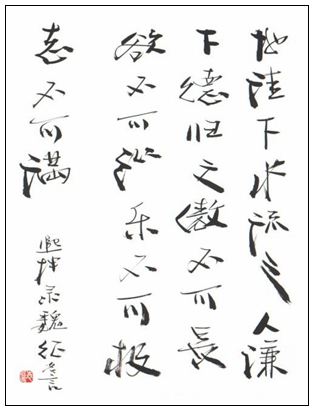 地洼下水流之人谦
下德归之傲不可長
欲不可纵乐不可极
志不可满
熙坤录魏征名言